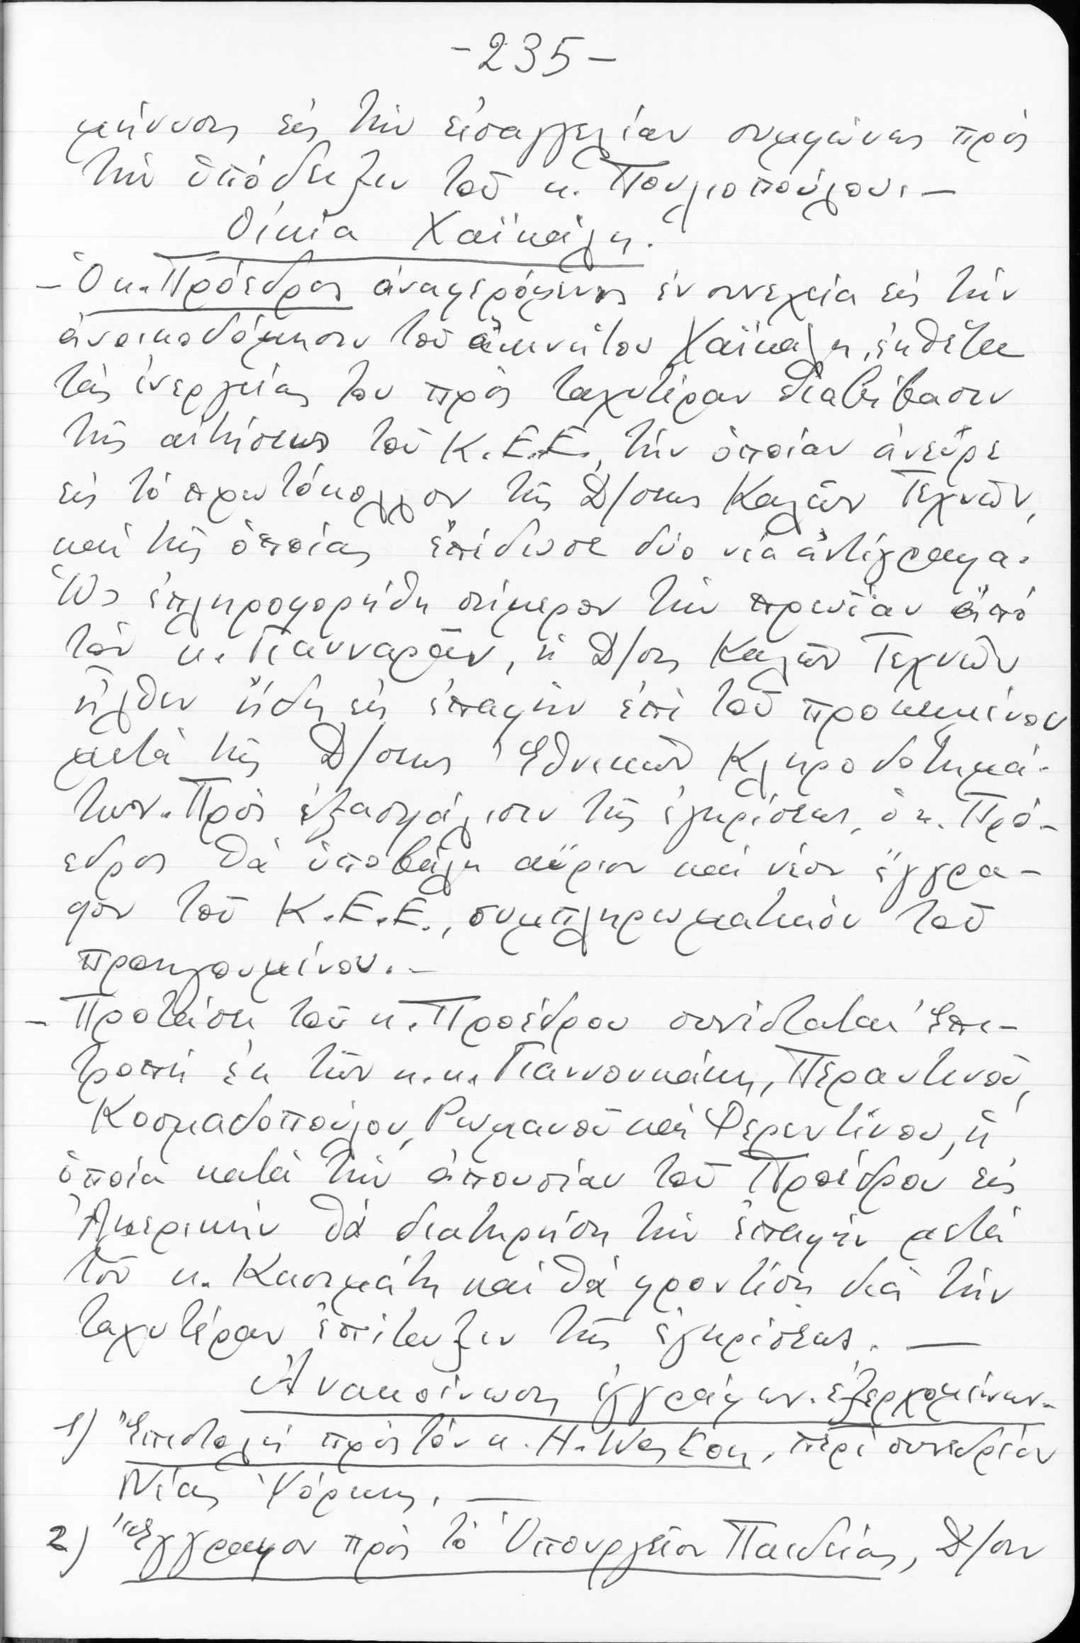 -235-
μήνυσης εἰς τὴν εἰσαγγελίαν συμφώνως πρὸς
τὴν ὑπόδειξιν τοῦ κ. Πουλιοπούλου.—
Οἰκία Χαϊκάλη.
-Ὁ κ. Πρόεδρος ἀναφερόμενος ἐν συνεχείᾳ εἰς τὴν
ἀνοικοδόμησιν τοῦ ἀκινήτου Χαϊκάλη, ἐκθέτει
τὰς ἐνεργείας του πρὸς ταχυτέραν διαβίβασιν
τῆς αἰτήσεως τοῦ Κ.Ε.Ε., τὴν ὁποίαν ἀνεῦρε
εἰς τὸ πρωτόκολλον τῆς Δ/σεως Καλῶν Τεχνῶν,
καὶ τῆς ὁποίας ἐπέδωσε δύο νέα ἀντίγραφα.
Ὡς ἐπληροφορήθη σήμερον τὴν πρωΐαν ἀπὸ
τὸν κ. Γιανναρᾶν, ἡ Δ/σις Καλῶν Τεχνῶν
ἦλθεν ἤδη εἰς ἐπαφὴν ἐπὶ τοῦ προκειμένου
μετὰ τῆς Δ/σεως Ἐθνικῶν Κληροδοτημά-
των. Πρὸς ἐξασφάλισιν τῆς ἐγκρίσεως, ὁ κ. Πρό-
εδρος θὰ ὑποβάλῃ αὔριον καὶ νέον ἔγγρα-
φον τοῦ Κ.Ε.Ε., συμπληρωματικὸν τοῦ
προηγουμένου.-
- Προτάσει τοῦ κ. Προέδρου συνίσταται Ἐπι-
τροπὴ ἐκ τῶν κ.κ. Γιαννουκάκη, Περαντινοῦ,
Κοσμαδοπούλου, Ρωμανοῦ καὶ Φερεντίνου, ἡ
ὁποία κατὰ τὴν ἀπουσίαν τοῦ Προέδρου εἰς
Ἀμερικὴν θὰ διατηρήσῃ τὴν ἐπαφὴν μετὰ
τοῦ κ. Κασιμάτη καὶ θὰ φροντίσῃ διὰ τὴν
ταχυτέραν ἐπίτευξιν τῆς ἐγκρίσεως. —
Ἀνακοίνωσις ἐγγράφων ἐξερχομένων.
1) Ἐπιστολὴ πρὸς τὸν κ. Η. , περὶ συνεδρίου
Νέας Ὑόρκης. —
2) Ἔγγραφον πρὸς τὸ Ὑπουργεῖον Παιδείας, Δ/σιν